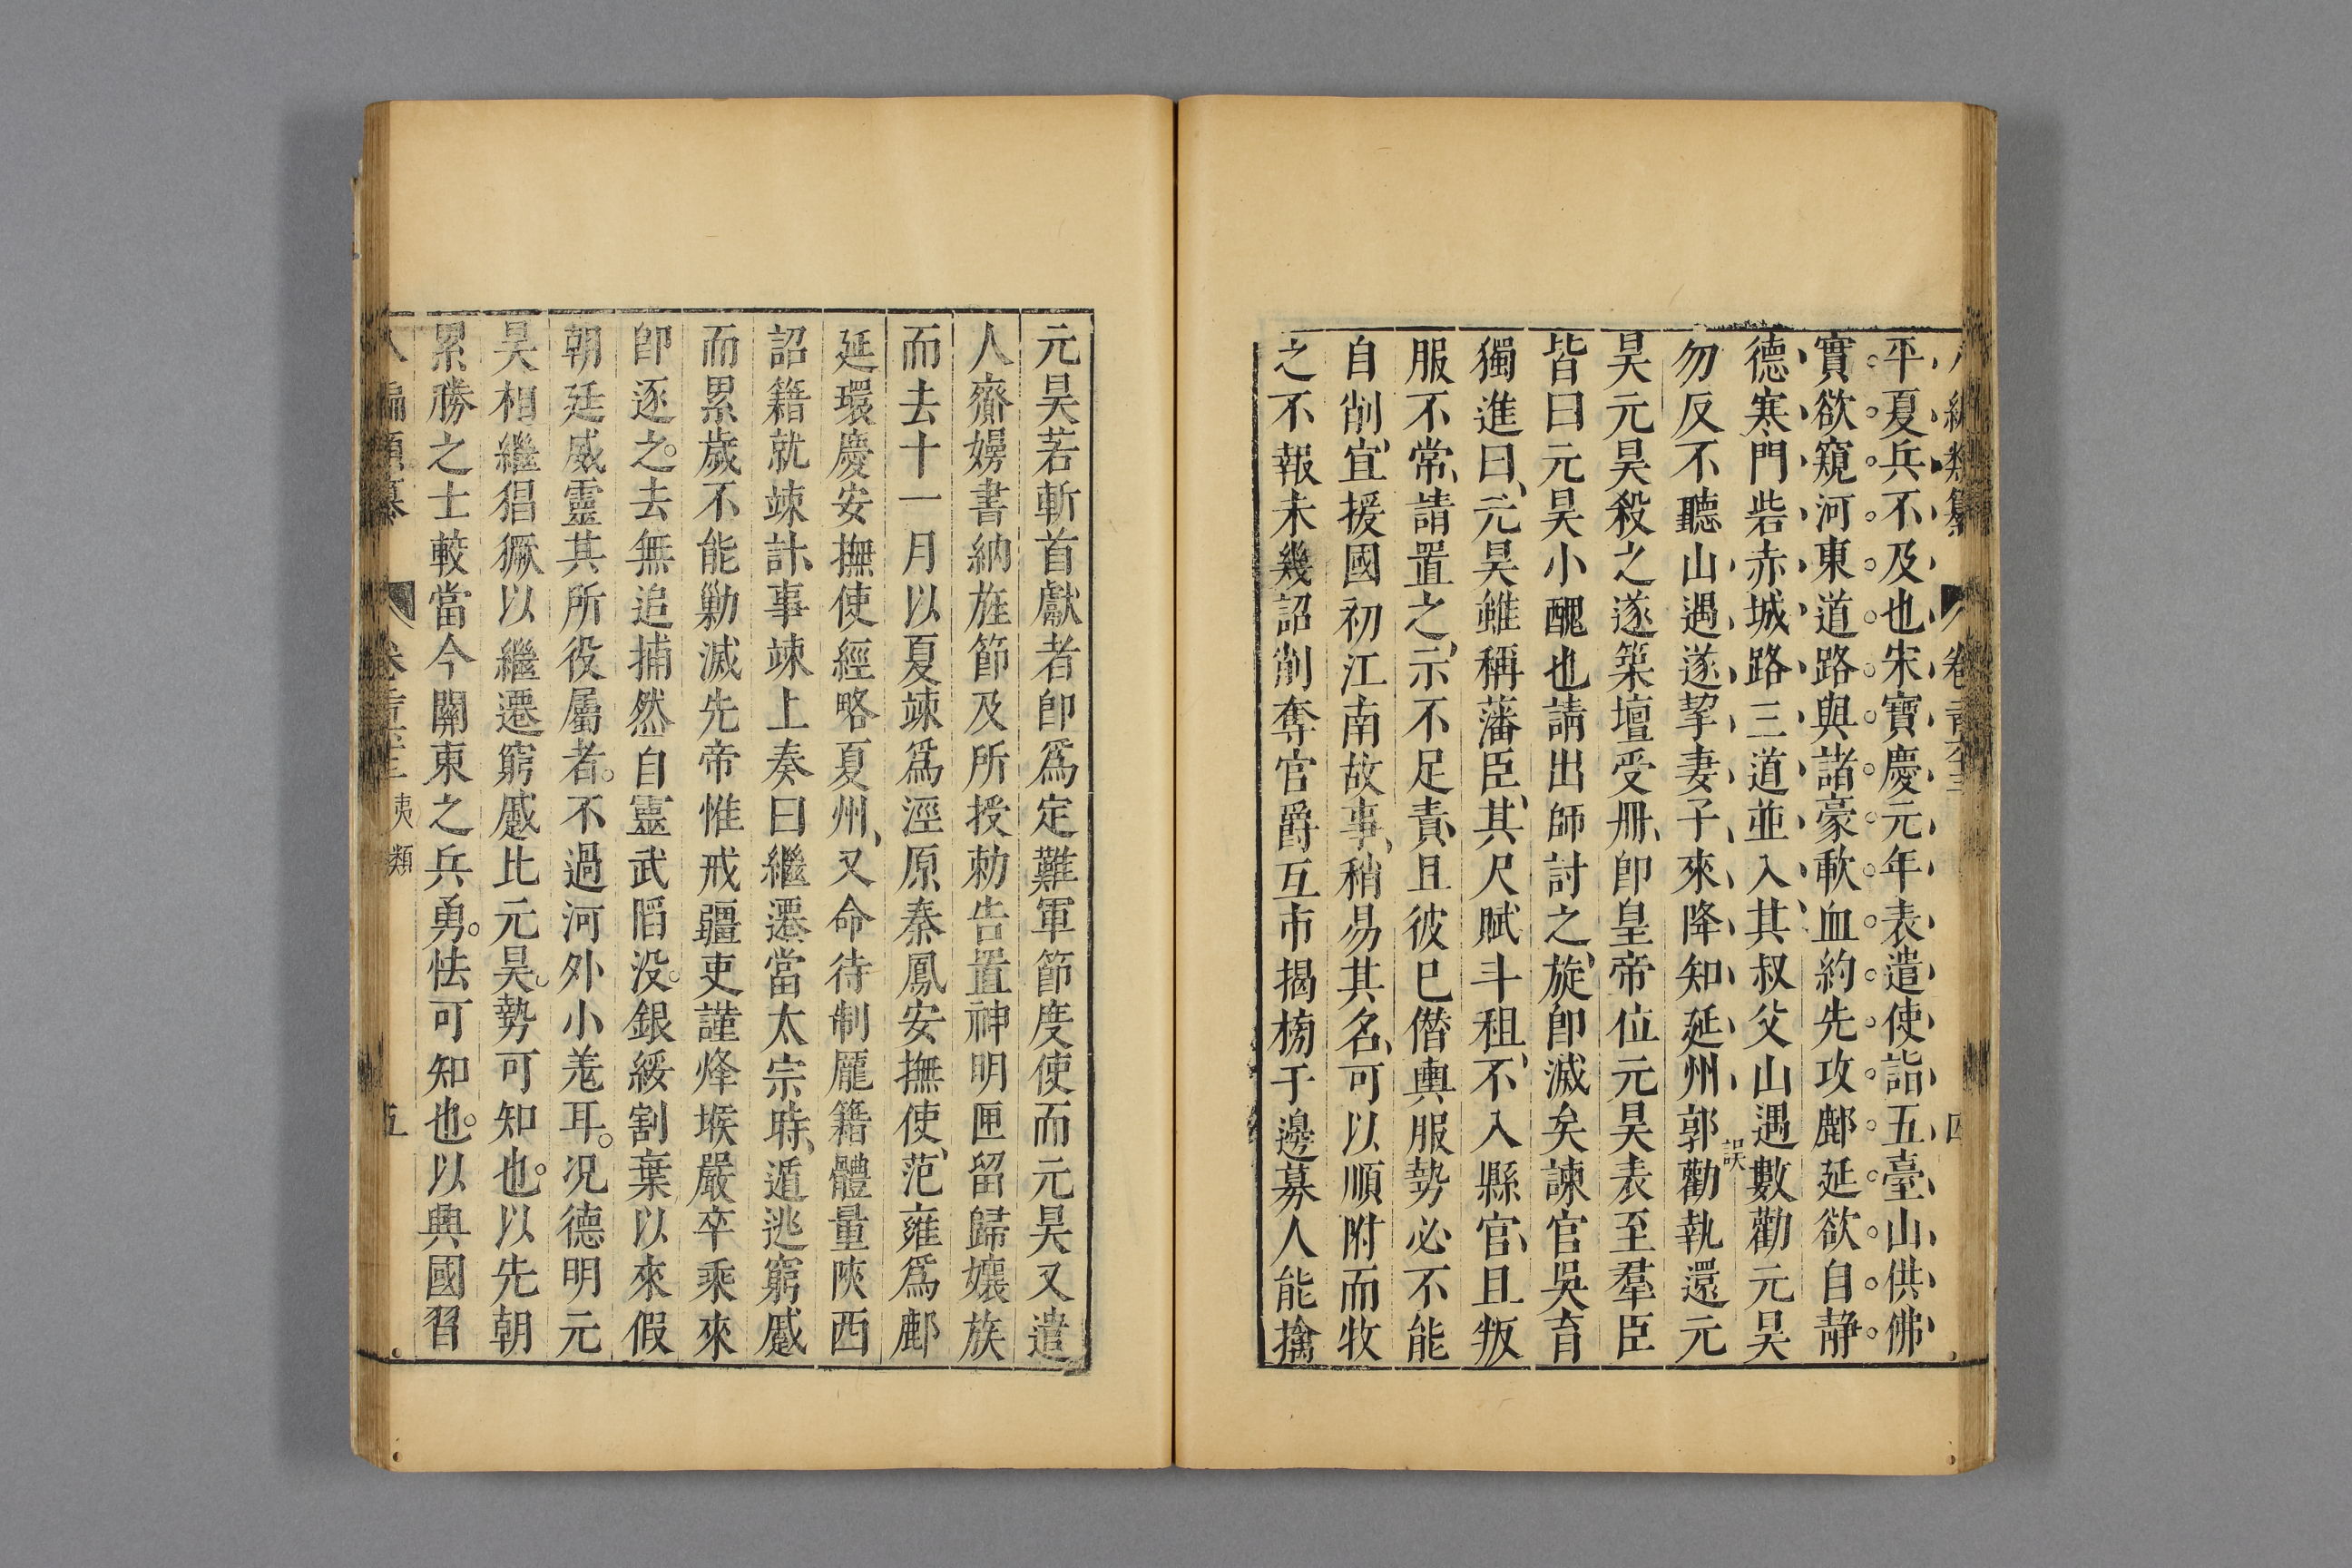 平夏兵不及也宋寶慶元年表遣使詣五臺山供佛
實欲窺河東道路與諸豪歃血約先攻鄜延欲自靜
德寒門砦赤城路三道並入其叔父山遇數勸元吴
勿反不聽山遇遂挈妻子來降知延州郭勸執還元
誤
昊元昊殺之遂築壇受冊卽皇帝位元昊表至羣臣
皆曰元昊小醜也請出師討之旋卽滅矣諫官吳育
獨進曰元昊雖稱藩臣其尺賦斗租不入縣官且叛
服不常請置之示不足責且彼巳僭輿服勢必不能
自削宜援國初江南故事稍易其名可以順附而牧
之不報未幾詔削奪官爵互市揭榜于邊募人能擒
元昊若斬首獻者卽爲定難軍節度使而元昊又遣
人齎嫚書納旌節及所授勅告置神明匣留歸孃族
而去十一月以夏竦爲涇原秦鳳安撫使范雍爲鄜
延環慶安撫使經略夏州又命待制龎籍體量陝西
詔籍就竦計事竦上奏曰繼遷當太宗時遁逃窮蹙
而累歲不能勦滅先帝惟戒疆吏謹烽堠嚴卒乘來
卽逐之去無追捕然自靈武䧟没銀綏割棄以來假
朝廷威靈其所役屬者不過河外小羌耳况德明元
昊相繼猖獗以繼遷窮蹙比元昊勢可知也以先朝
累勝之士較當今關東之兵勇怯可知也以興國習
夷類
五